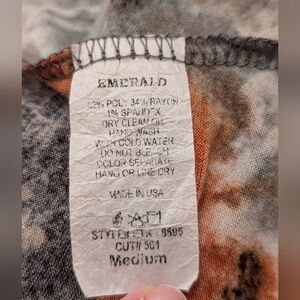 EMERALD
62% POLY 34% RAYON
4% SPANDEX
DRY CLEAN OR
HAND WASH
WITH COLD WATER
DO NOT BLEACH
COLOR SEPARATE
HANG OR LINE DRY
MADE IN USA
CUT# 501
Medium